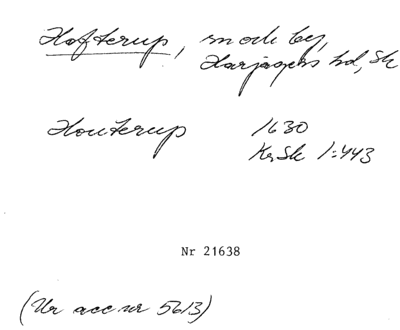 Hofterup, sn och by,
Harjagers hd, Sk
Houterup 1630
KrSk 1:443
Nr 21638
(Ur acc nr 5613)